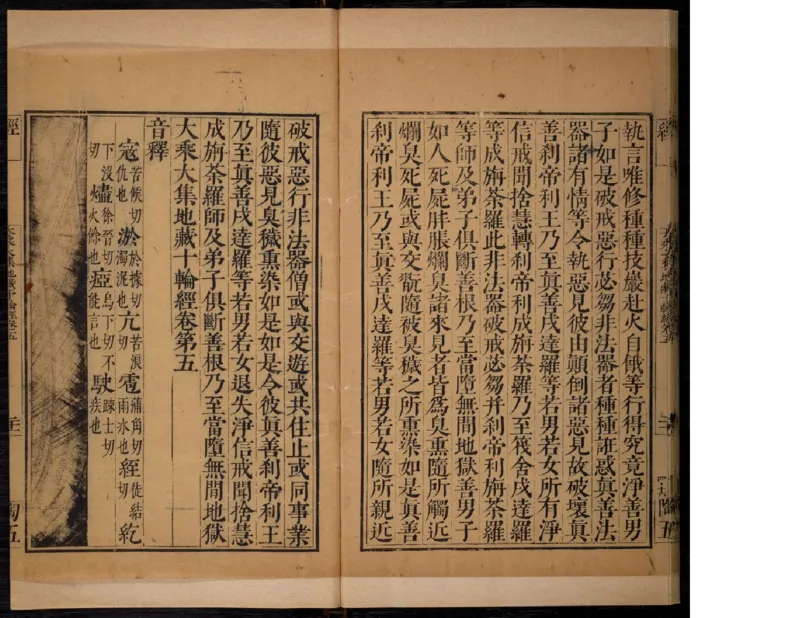 執言唯修種種投巖赴火自餓等行得究竟淨善男
子如是破戒惡行苾芻非法器者種種誑惑眞善法
器諸有情等令執惡見彼由顚倒諸惡見故破壞眞
善刹帝利王乃至眞善戍達羅等若男若女所有淨
信戒聞捨慧轉刹帝利成旃荼羅乃至筏舍戍達羅
等成旃荼羅此非法器破戒苾芻并刹帝利旃荼羅
等師及弟子俱斷善根乃至當墮無間地獄善男子
如人死屍胮脹爛臭諸來見者皆爲臭熏隨所觸近
爛臭死屍或與交翫隨被臭穢之所熏染如是眞善
刹帝利王乃至眞善戍達羅等若男若女隨所親近
破戒惡行非法器僧或與交遊或共住止或同事業
隨彼惡見臭穢熏染如是如是令彼眞善刹帝利王
乃至眞善戍達羅等若男若女退失淨信戒聞捨慧
成旃荼羅師及弟子俱斷善根乃至當墮無間地獄
大乘大集地藏十輪經卷第五
音釋
寇苦候切仇也 淤於據切濁泥也 亢苦浪切 雹蒲角切雨冰也 絰徒結切 紇
下沒切 燼徐晉切火餘也 瘂烏下切不能言也 駛踈士切疾也